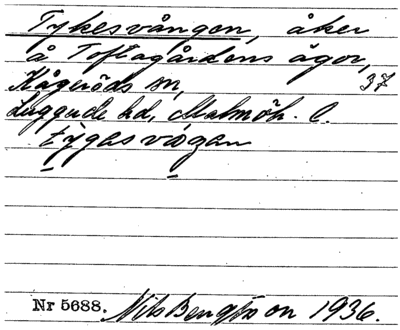 Tykesvången, åker
å Toftagårdens ägor,
Kågeröds sn, 37
Luggude hd, Malmöh. l.
tygasvången
Nr 5688. Nils Bengtsson 1936.